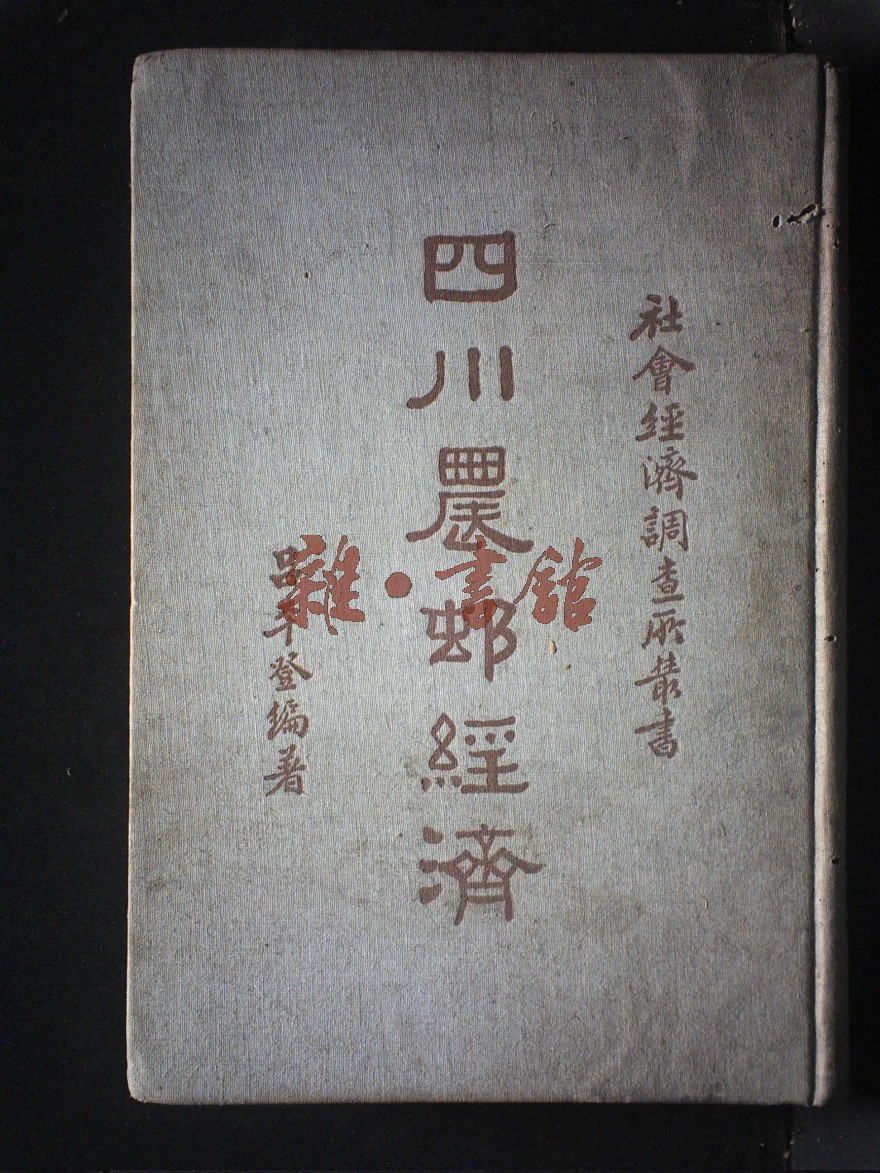 社會經濟調查所叢書
四川農邨經濟
呂平登編著
雜•書館